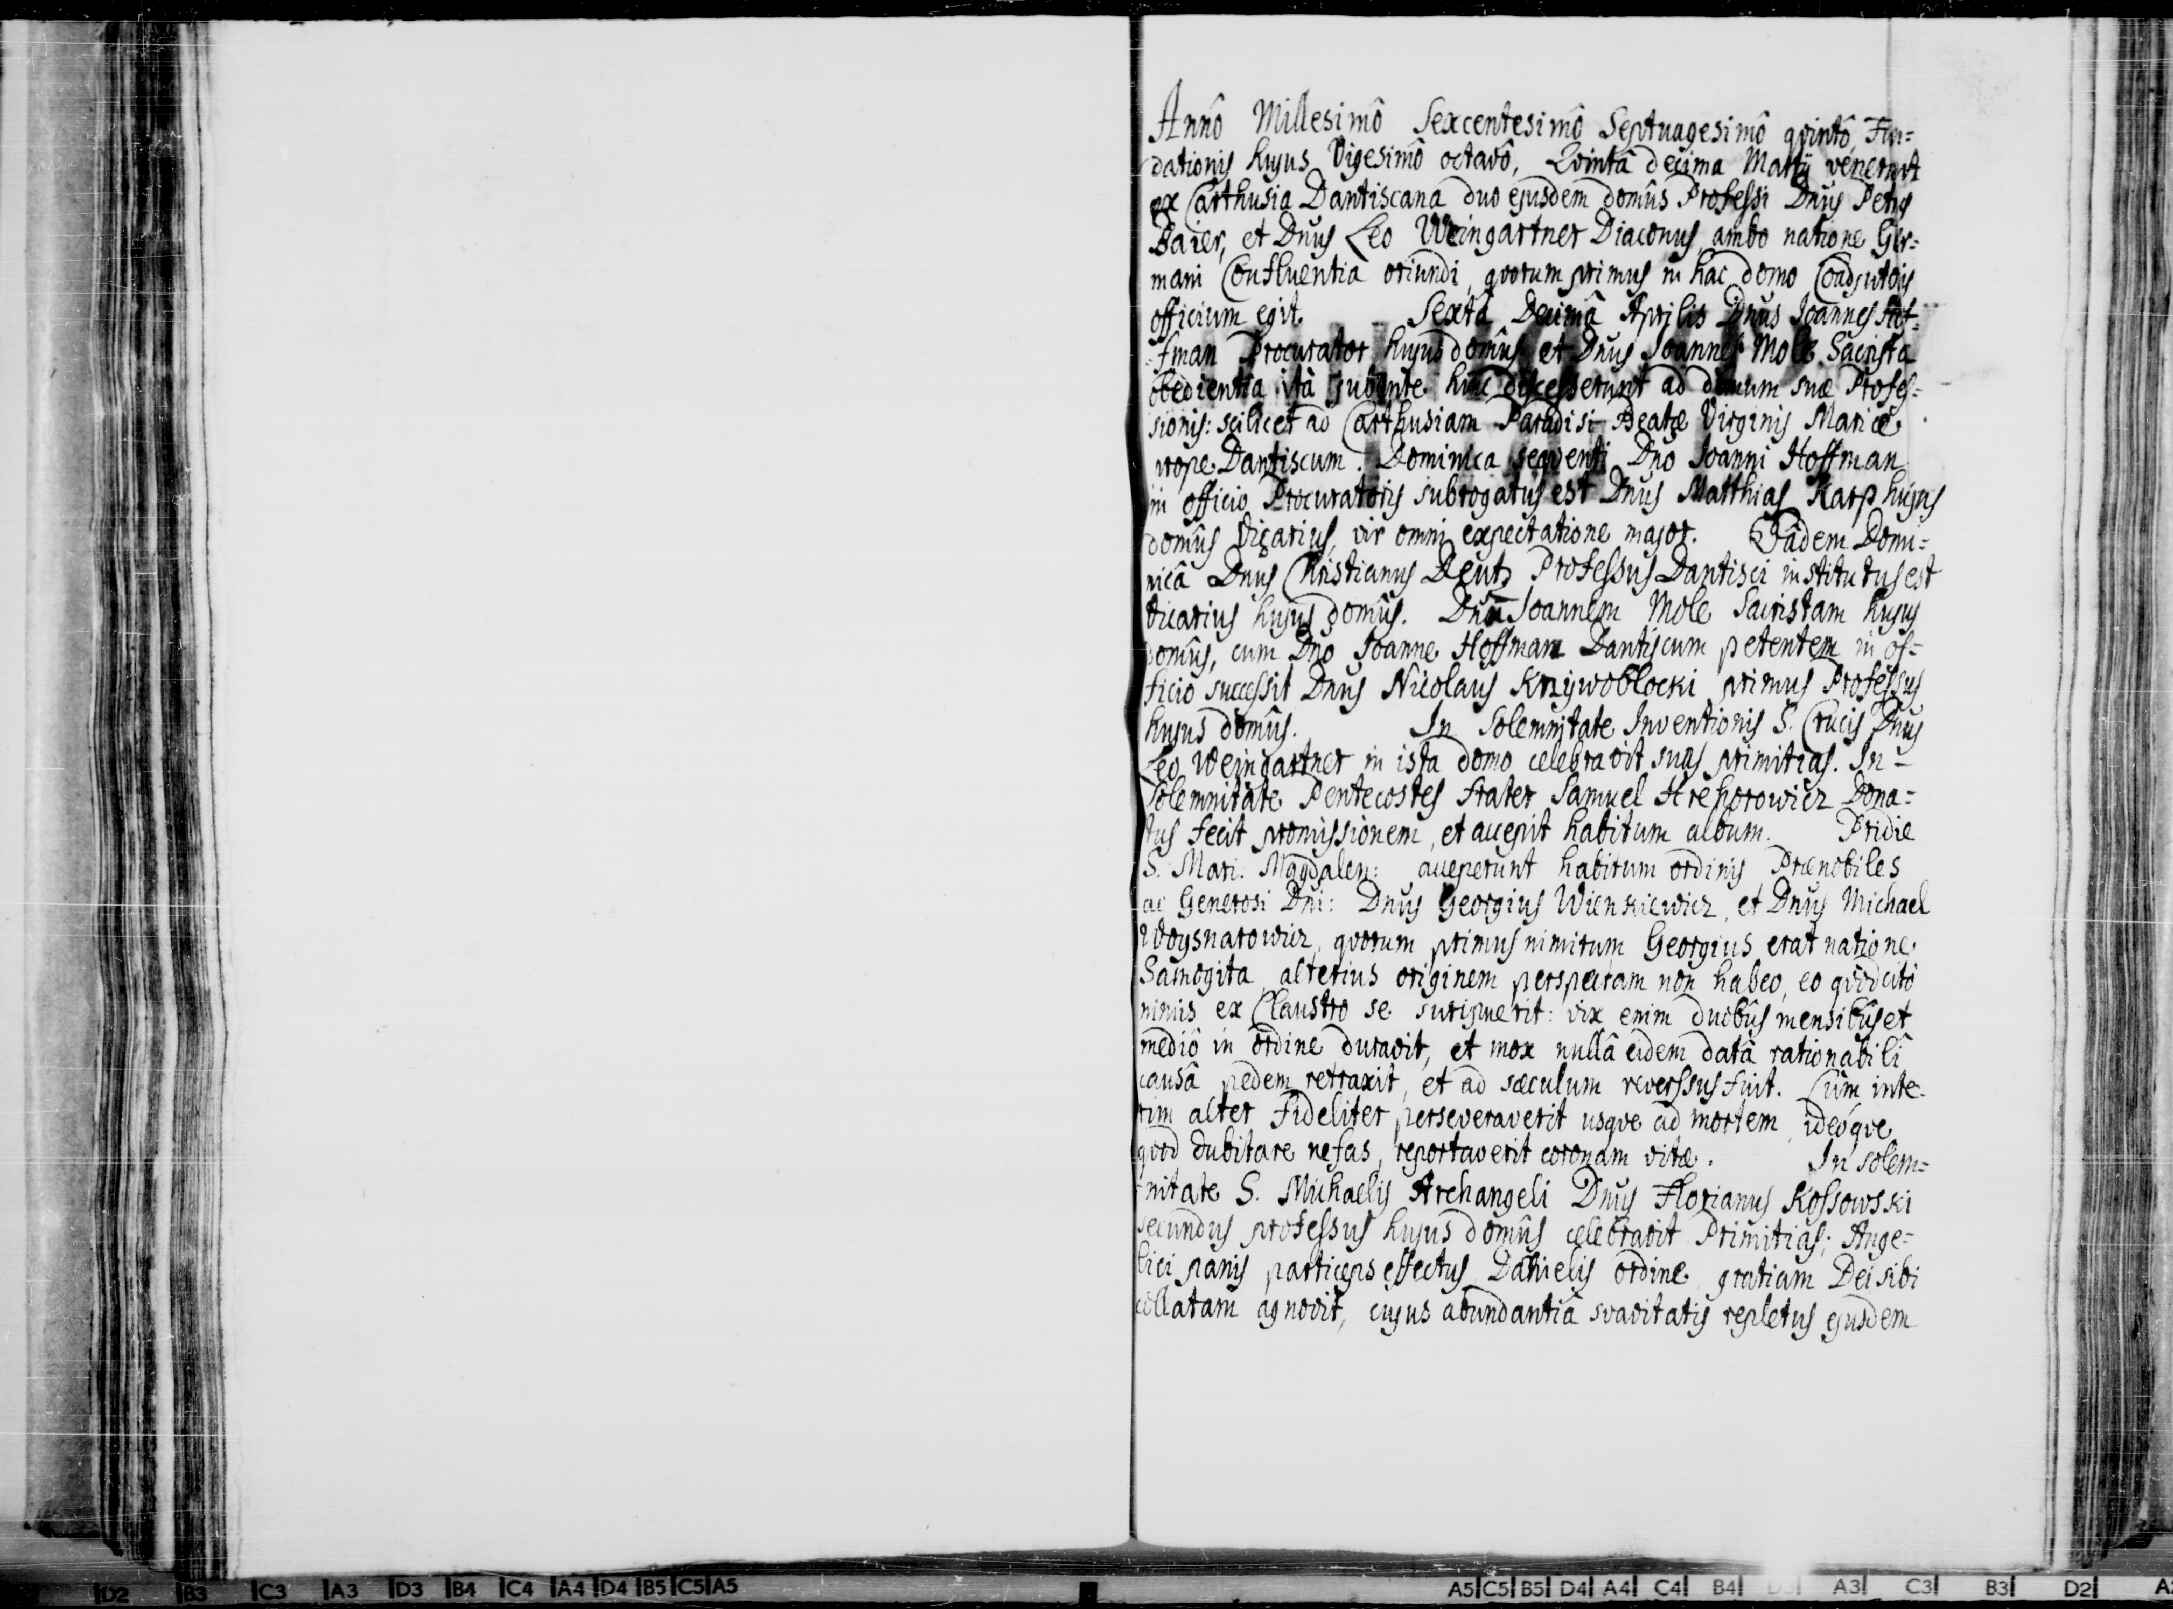 Annô Millesimô Sexcentesimô Septuagesimô qvintô, Fun=
dationis hujus Vigesimô octavô, Qvintâ decima Martÿ venerunt
ex Carthusia Dantiscana duo ejusdem domûs Professi Dnus Petrus
Baier, et Dnus Leo Weingartner Diaconus, ambo natione Ger=
mani Confluentia oriundi, qvorum primus in hac domo Coadjutoris
officium egit. Sexta Decimâ Aprilis Dnus Joannes Hof=
=fman Procurator hujus domûs et Dnus Joannes Mole Sacrista
obedientia ità jubente hinc discesserunt ad domum suæ Profes=
sionis: scilicet ad Carthusiam Paradisi Beatæ Virginis Mariæ
prope Dantiscum. Dominica seqventi Dno Joanni Hoffman
in officio Procuratoris subrogatus est Dnus Matthias Karp hujus
domûs Vicarius, vir omni expectatione major. Eâdem Domi=
nicâ Dnus Christianus Deutz Professus Dantisci institutus est
Vicarius hujus domûs. Dnū Joannem Mole Sacristam hujus
domûs, cum Dno Joanne Hoffman Dantiscum petentem in of=
ficio successit Dnus Nicolaus Krzywoblocki primus Professus
hujus domûs. In Solemnitate Inventionis S. Crucis Dnus
Leo Weingartner in ista domo celebravit suas primitias. In
Solemnitate Pentecostes frater Samuel Hrehorowicz Dona=
tus fecit promissionem, et accepit habitum album. Pridie
S. Mari. Magdalen: acceperunt habitum ordinis Prænobiles
ac Generosi Dni: Dnus Georgius Wienkiewicz, et Dnus Michael
Woysnarowicz, qvorum primus nimirum Georgius erat natione
Samogita, alterius originem perspectam non habeo, eo qvòd citò
nimis ex Claustro se surripuerit: vix enim duobûs mensibûs et
mediô in ordine duravit, et mox nullâ eidem datâ rationabili
causâ pedem retraxit, et ad sæculum reverssus fuit. Cùm inte=
rim alter fideliter perseveraverit usqve ad mortem, ideóqve
qvod dubitare nefas, reportaverit coronam vitæ. In solem=
=nitate S. Michaelis Archangeli Dnus Florianus Kossowski
secundus professus hujus domûs celebravit Primitias; Ange=
lici panis particeps effectus Danielis ordine gratiam Dei sibi
collatam agnovit, cujus abundantiâ svavitatis repletus ejusdem
D2 B3 C3 A3 D3 B4 C4 A4 D4 B5 C5 A5
A5 C5 B5 D4 A4 C4 B4 D3 A3 C3 B3 D2